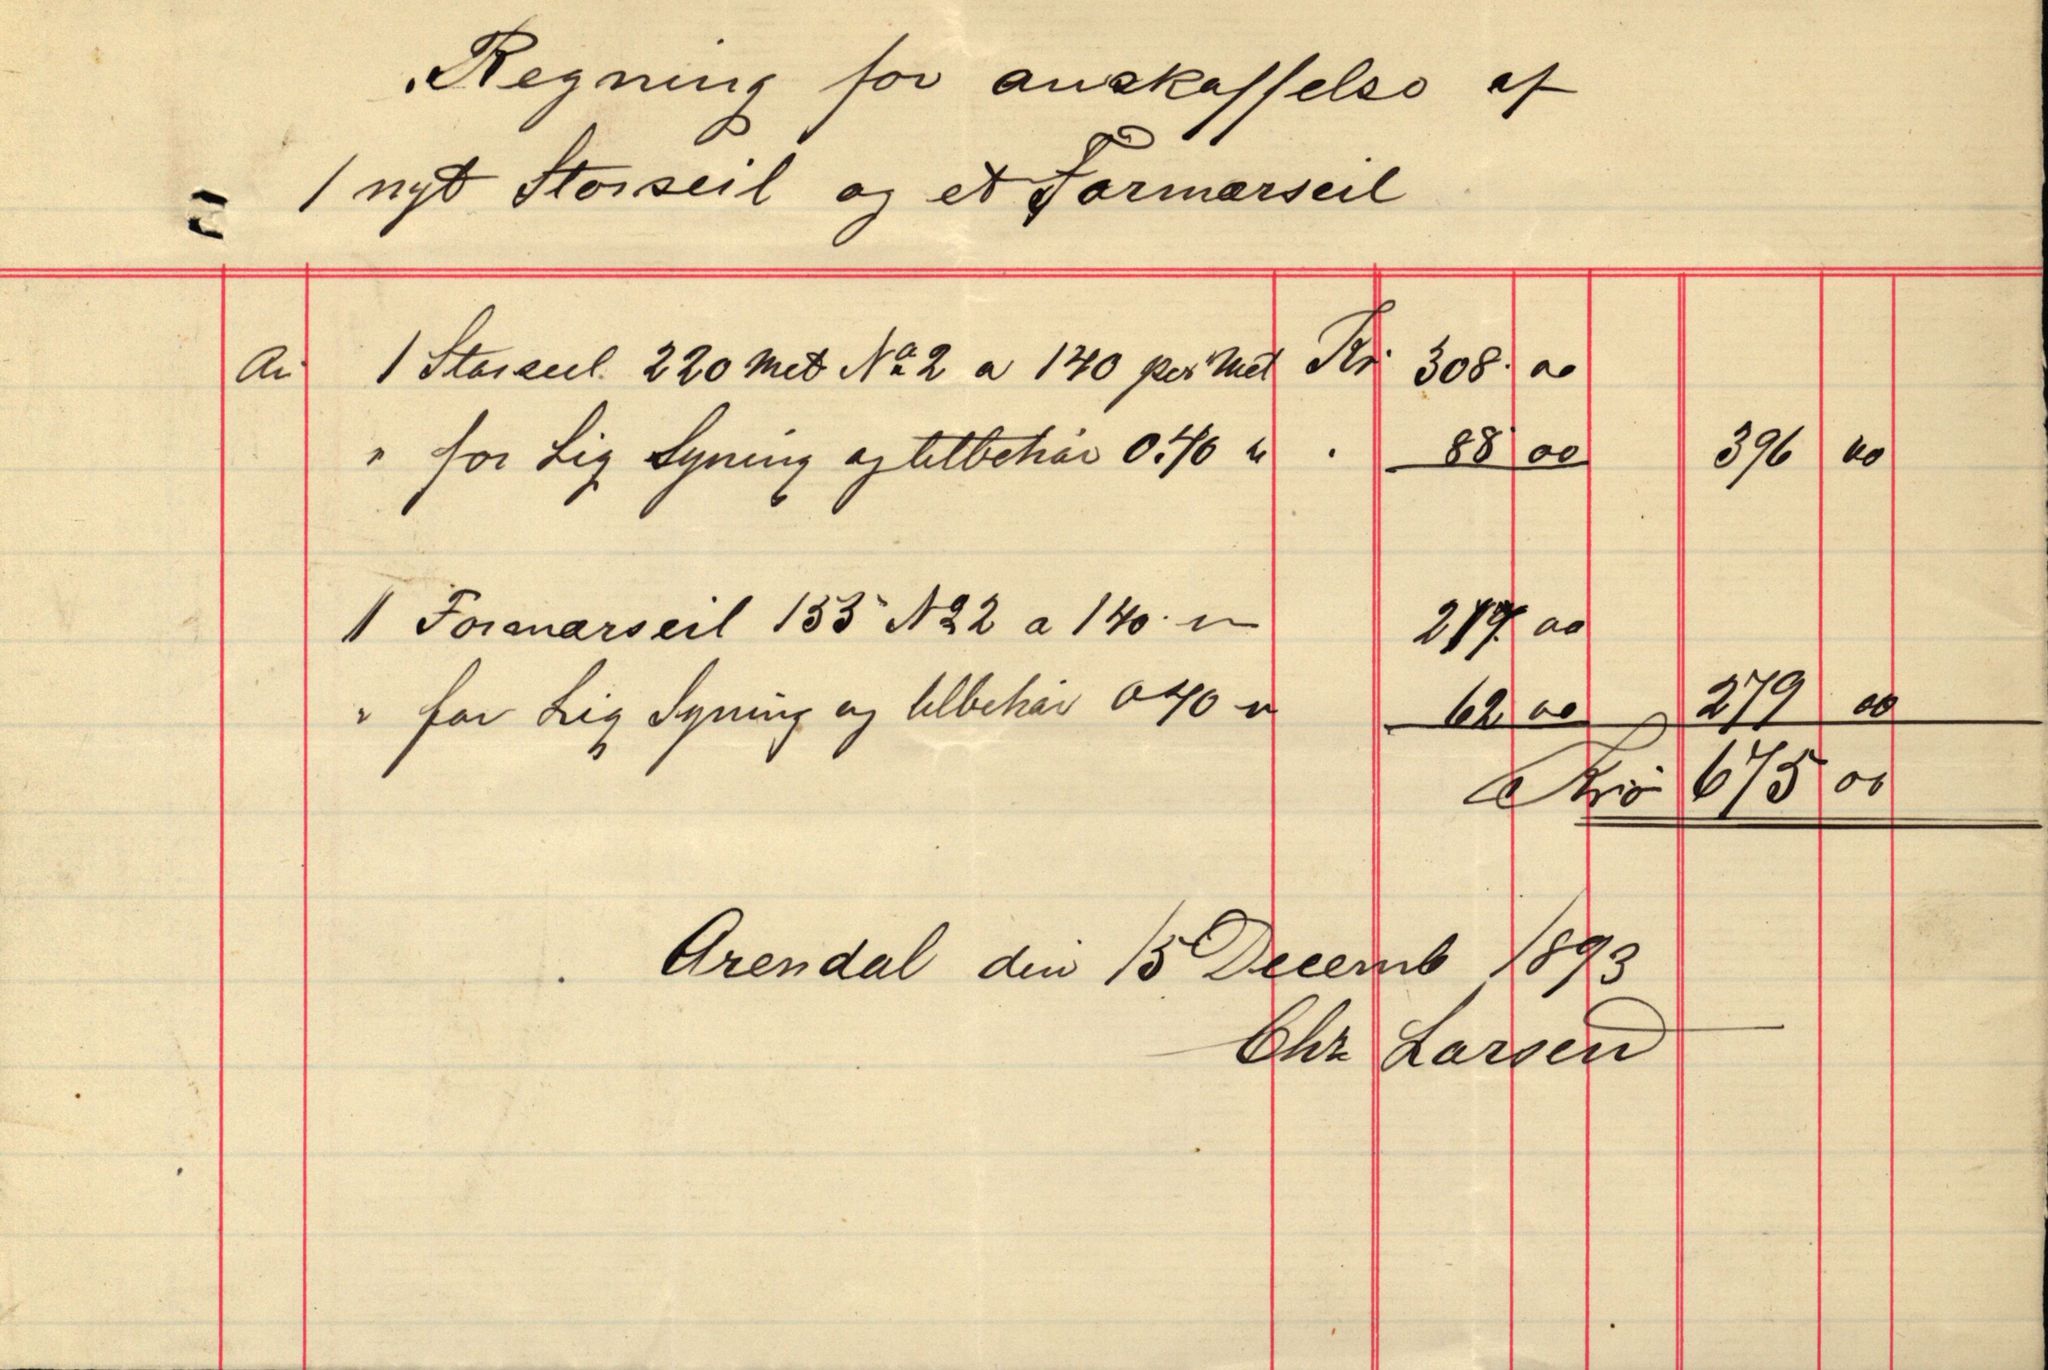 Regning for anskaffelse af
1 nyt Storseil og et Formærseil
An 1 Storseil 220 Met No 2 a 140 per Met Kr 308. 00
" for Lig Syning og tilbehör 0.40 " . 88 00 396 00
1 Formærseil 155 No 2 a 140 " 217. 00
" for Lig Syning og tilbehör 0 40 " 62 00 279 00
Kr 675 00
Arendal den 15 Decemb 1893
Chr Larsen